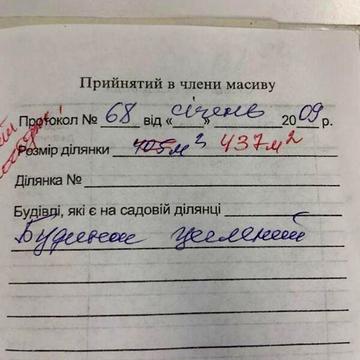 Прийнятий в члени масиву
Протокол № 68 від «___» січень 2009 р.
Розмір ділянки 405м² 437м²
Ділянка №
Будівлі, які є на садовій ділянці
Будинок цегляний